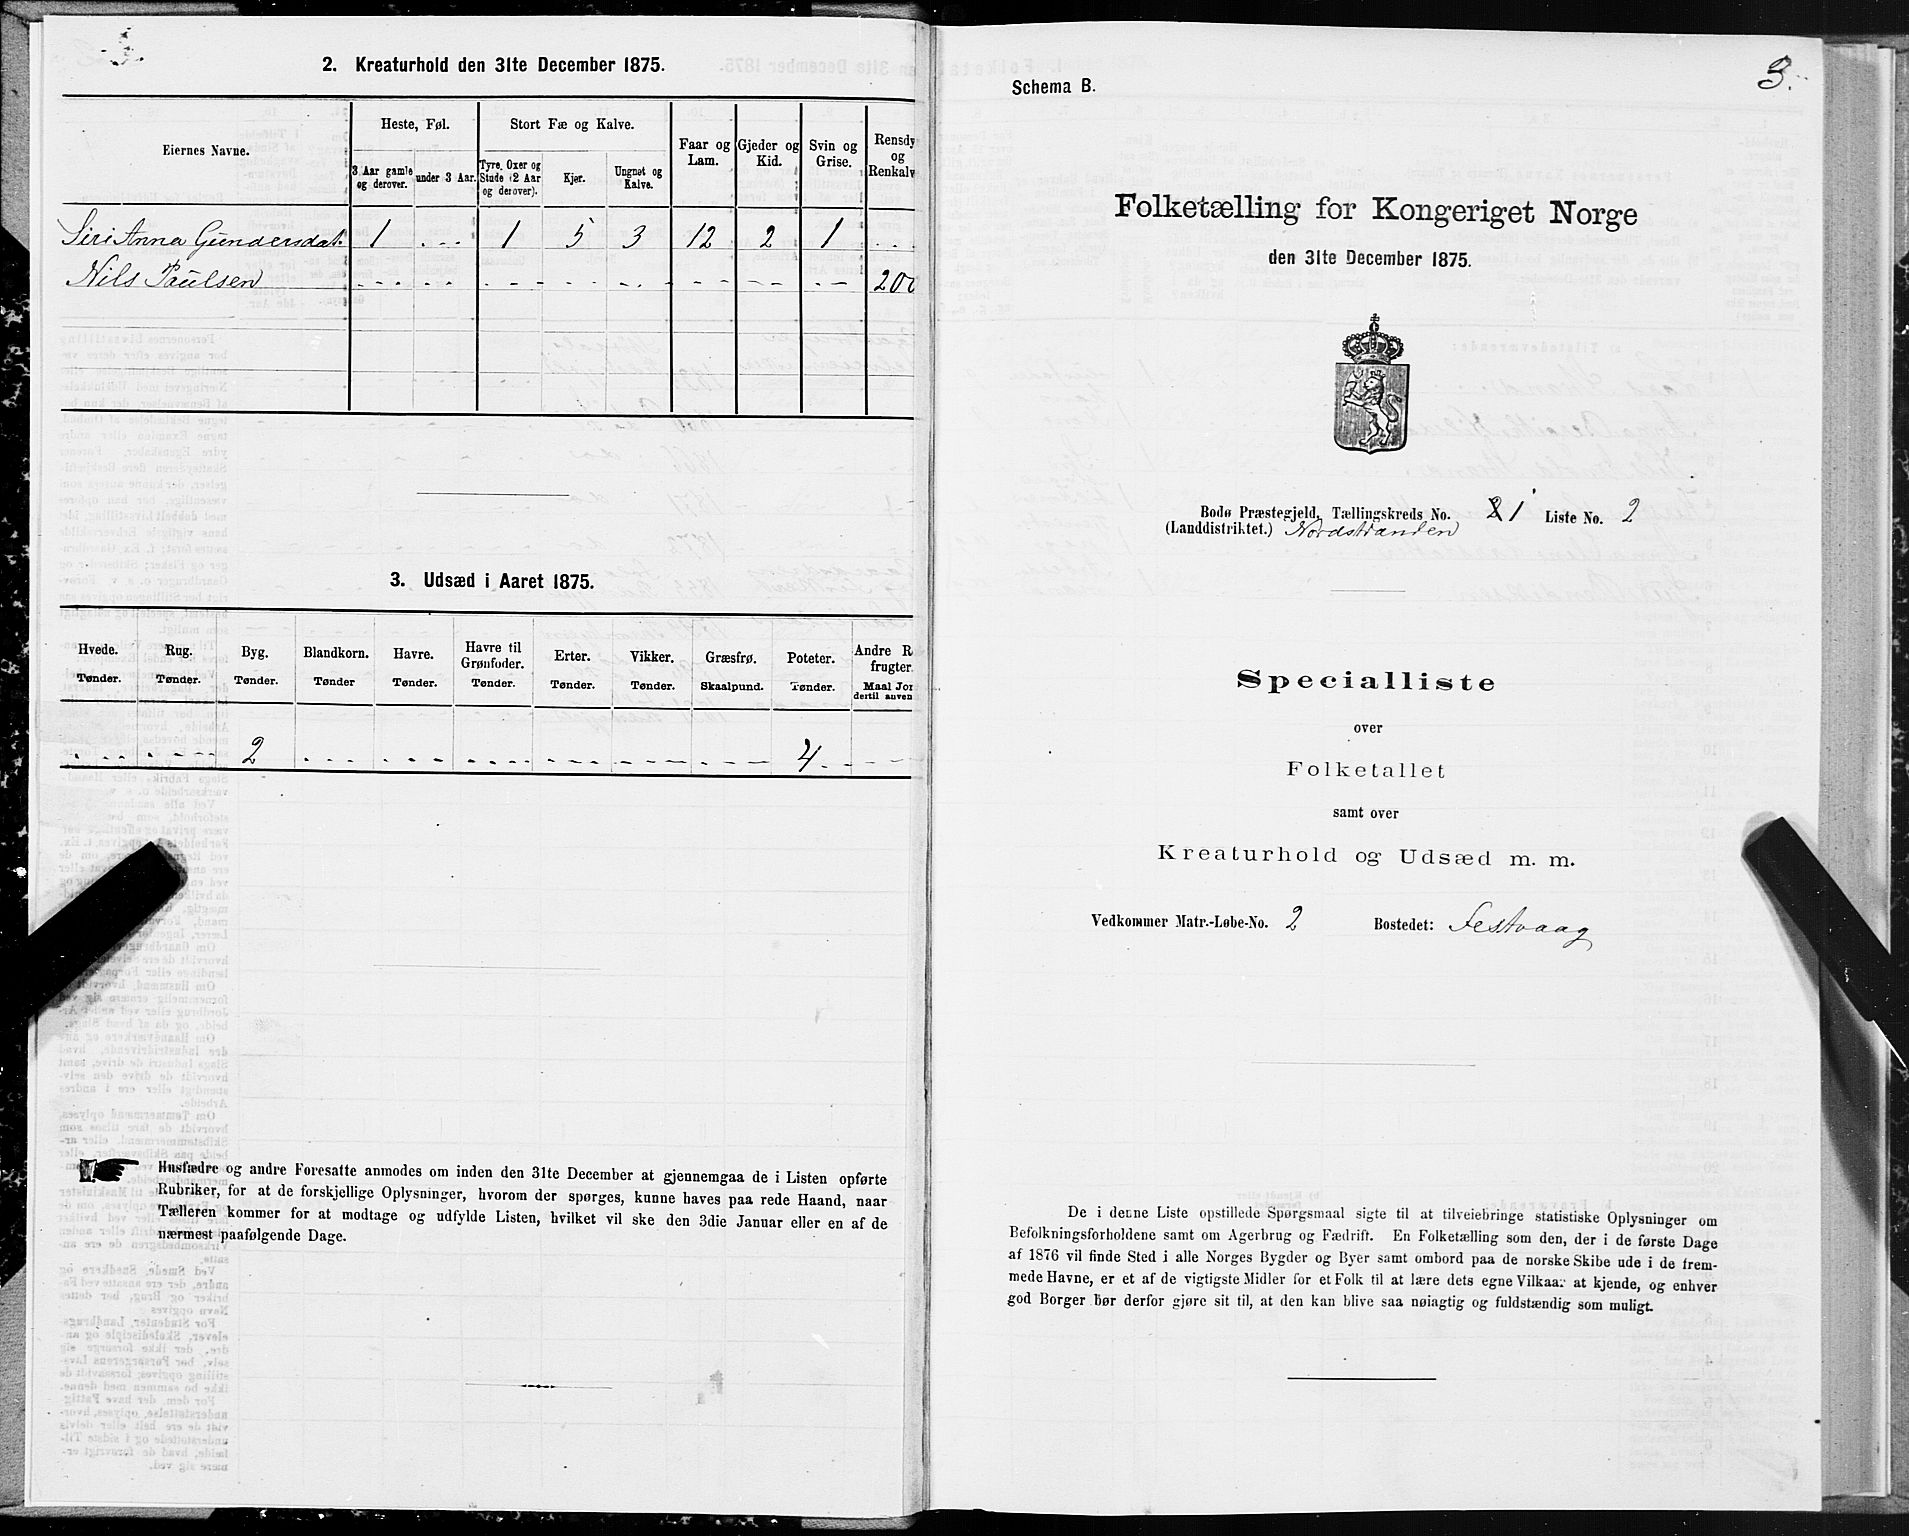 2. Kreaturhold den 31te December 1875.
Eiernes Navne.
Heste, Føl.
Stort Fæ og Kalve.
Faar og Lam.
Gjeder og Kid.
Svin og Grise.
Rensdy og Renkalv
3 Aar gamle og derover.
under 3 Aar.
Tyre, Oxer og Stude (2 Aar og derover).
Kjør.
Ungnøt og Kalve.
Siri Anna Gundersdat. 1 . . . 1 5 3 12 2 1 . . .
Nils Paulsen - - - - - - - - - 200
3. Udsæd i Aaret 1875.
Hvede. Rug. Byg. Blandkorn. Havre. Havre til Grønfoder. Erter. Vikker. Græsfrø. Poteter. Andre R frugter
Tønder. Tønder. Tønder. Tønder Tønder. Tønder. Tønder. Tønder. Skaalpund. Tønder. Maal Jor dertil anven
. . . . - - - 2 . . . . . . . . . . . . . . . . . . 4 . - - -
Husfædre og andre Foresatte anmodes om inden den 31te December at gjennemgaa de i Listen opførte
Rubriker, for at de forskjellige Oplysninger, hvorom der spørges, kunne haves paa rede Haand, naar
Tælleren kommer for at modtage og udfylde Listen, hvilket vil ske den 3die Januar eller en af de
nærmest paafølgende Dage.
3.
Schema B.
Folketælling for Kongeriget Norge
den 31te December 1875.
Bodø Præstegjeld, Tællingskreds No. 2 1 Liste No. 2
(Landdistriktet.) Nordstranden
Specialliste
over
Folketallet
samt over
Kreaturhold og Udsæd m. m.
Vedkommer Matr.-Løbe-No. 2 Bostedet: Festvaag
De i denne Liste opstillede Spørgsmaal sigte til at tilveiebringe statistiske Oplysninger om
Befolkningsforholdene samt om Agerbrug og Fædrift. En Folketælling som den, der i de første Dage
af 1876 vil finde Sted i alle Norges Bygder og Byer samt ombord paa de norske Skibe ude i de frem-
mede Havne, er et af de vigtigste Midler for et Folk til at lære dets egne Vilkaar at kjende, og enhver
god Borger bør derfor gjøre sit til, at den kan blive saa nøiagtig og fuldstændig som muligt.